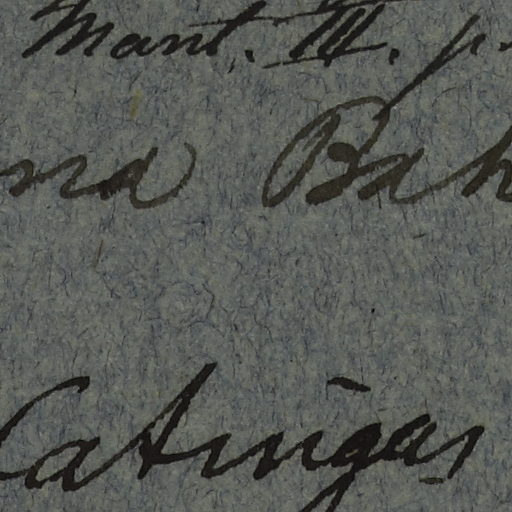 Mant. III. p.
na Bah
Catingas